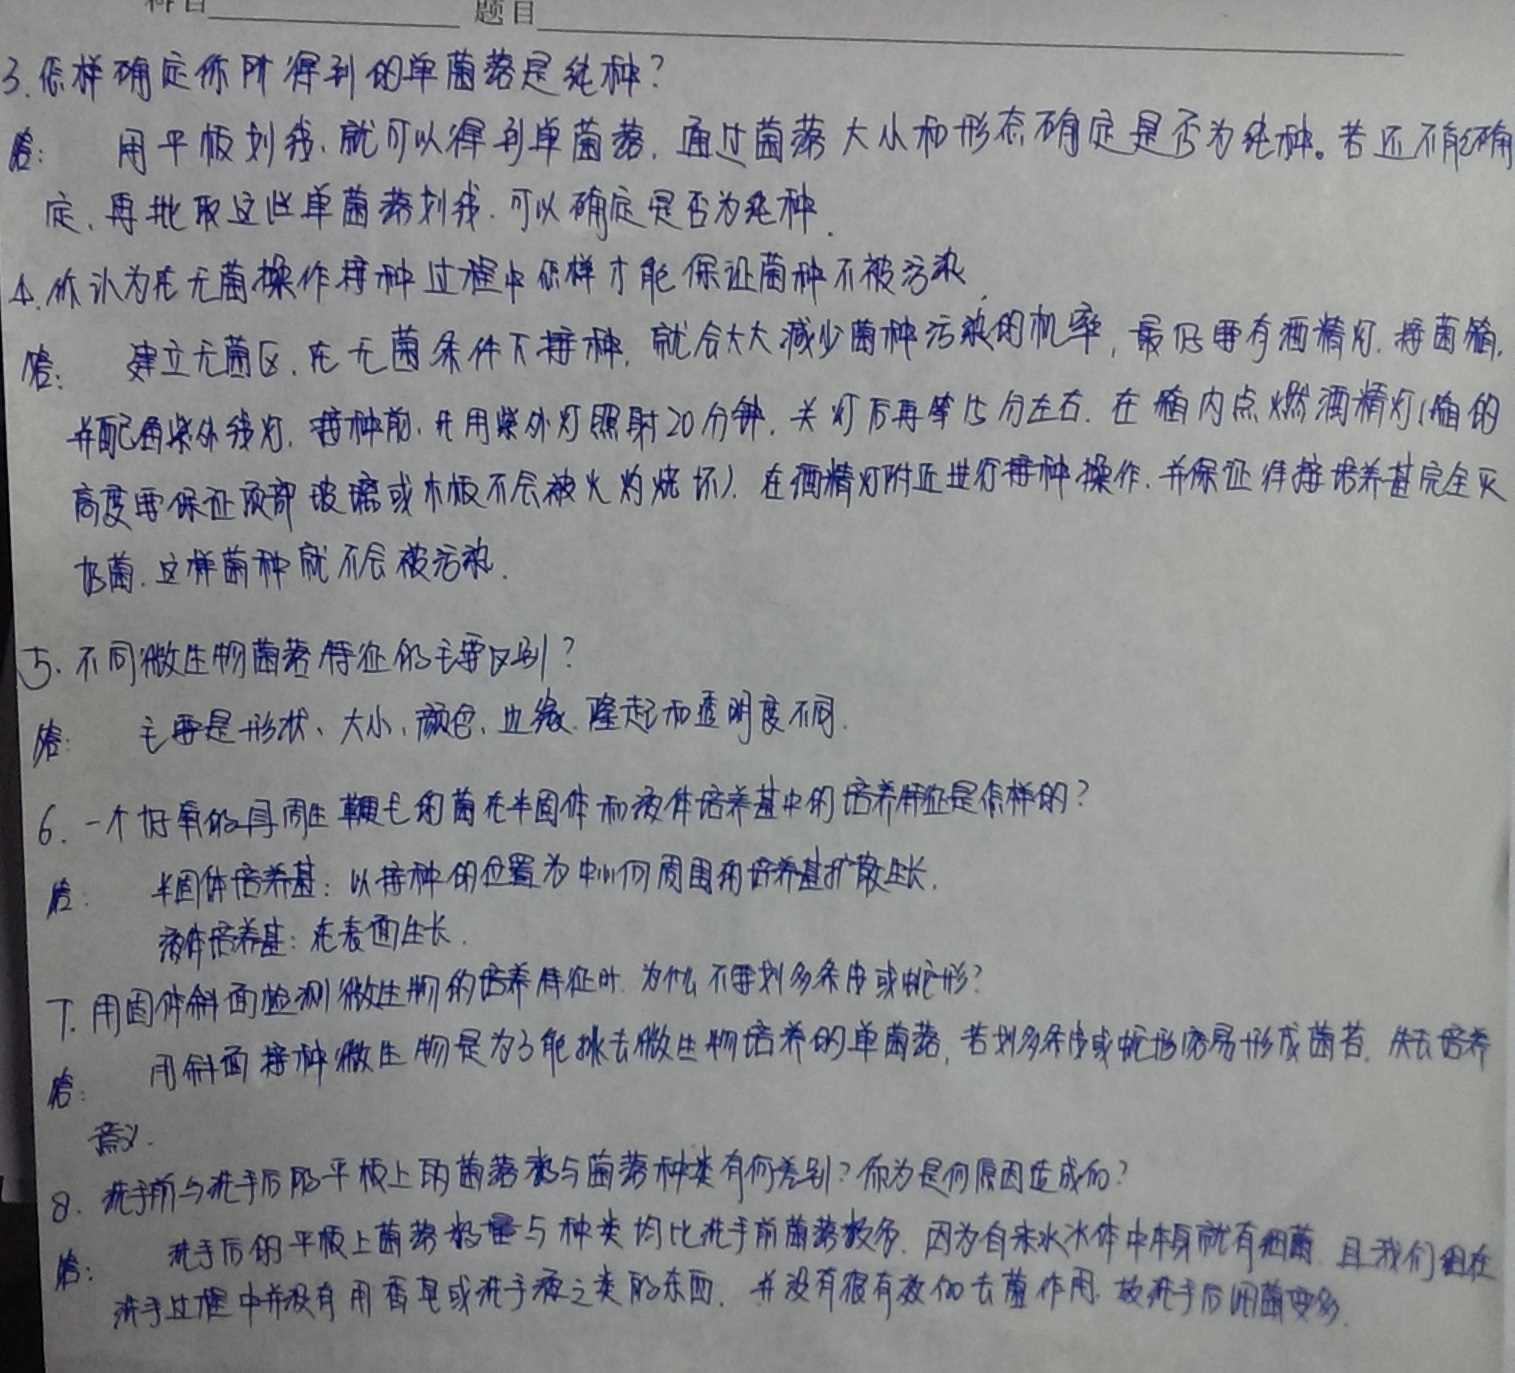 科目 题目
3. 怎样确定你所得到的单菌落是纯种?
答: 用平板划线,就可以得到单菌落,通过菌落大小和形态确定是否为纯种。若还不能确
定,再挑取这些单菌落划线,可以确定是否为纯种.
4. 你认为在无菌操作接种过程中怎样才能保证菌种不被污染.
答: 建立无菌区,在无菌条件下接种,就会大大减少菌种污染的机率,最好要有酒精灯.接菌箱,
并配备紫外线灯,接种前,先用紫外灯照射20分钟,关灯后再等15分左右.在箱内点燃酒精灯(箱的
高度要保证顶部玻璃或木板不会被火灼烧坏).在酒精灯附近进行接种操作,并保证待接培养基完全灭
菌.这样菌种就不会被污染.
5. 不同微生物菌落特征的主要区别?
答: 主要是形状、大小、颜色、边缘.隆起和透明度不同.
6. 一个好氧的具周生鞭毛的菌在半固体和液体培养基中的培养特征是怎样的?
答: 半固体培养基:以接种的位置为中心向周围的培养基扩散生长.
液体培养基:在表面生长.
7. 用固体斜面检测微生物的培养特征时.为什么不要划多条皮或蛇形?
答: 用斜面接种微生物是为了能挑去微生物培养的单菌落,若划多条皮或蛇形容易形成菌苔,失去培养
意义.
8. 洗手前与洗手后的平板上的菌落数与菌落种类有何差别?你为是何原因造成的?
答: 洗手后的平板上菌落数量与种类均比洗手前菌落数多.因为自来水水体中本身就有细菌.且我们组在
洗手过程中并没有用香皂或洗手液之类的东西.并没有很有效的去菌作用.故洗手后细菌变多.